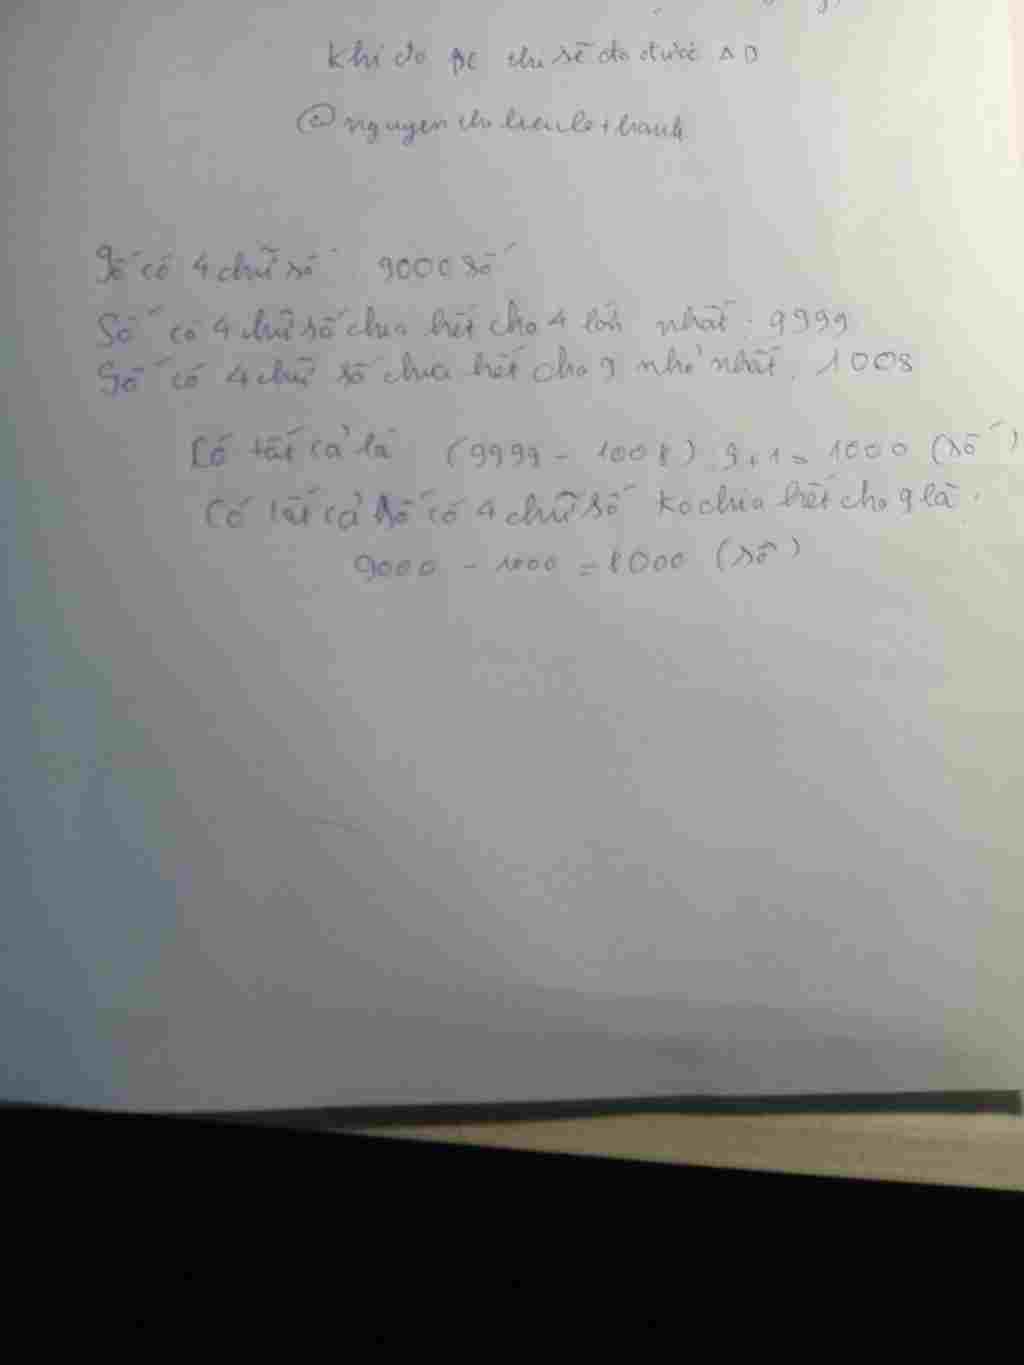 Khi đo AC thì sẽ đo được AB
@nguyen
Số có 4 chữ số 9000 số
Số có 4 chữ số chia hết cho 4 lớn nhất: 9999
Số có 4 chữ số chia hết cho 9 nhỏ nhất: 1008
Có tất cả là (9999 - 1008) : 9 + 1 = 1000 (số)
Có tất cả số có 4 chữ số ko chia hết cho 9 là:
9000 - 1000 = 8000 (số)